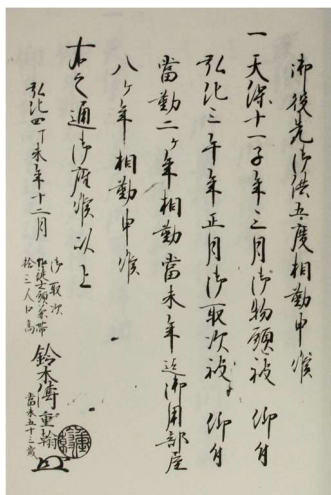 御役先御供五度相勤申候
一天保十一子年三月御物頭被 仰付
弘化三午年正月御取次被 仰付
當勤二ヶ年相勤當未年迄御用部屋
八ヶ年相勤申候
右之通御座候以上
弘化四丁未年十二月
御取次
士頭兼帯
拾三人口高
鈴木傳
重翰
當未五十三歳